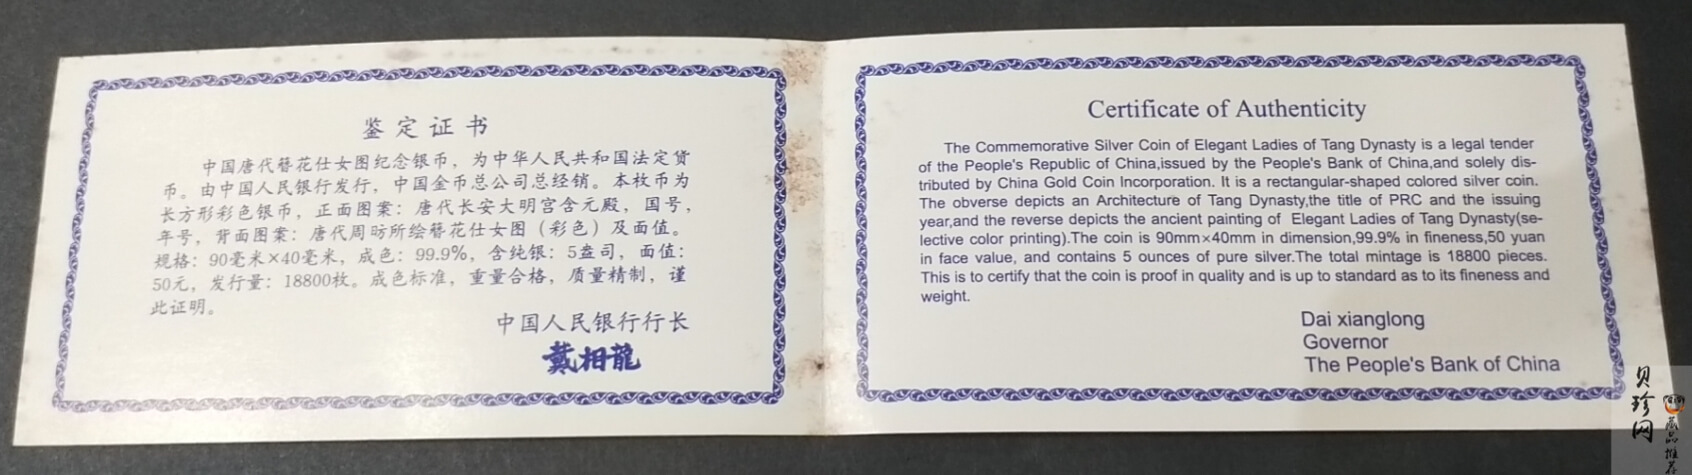 鉴定证书
中国唐代簪花仕女图纪念银币，为中华人民共和国法定货
币。由中国人民银行发行，中国金币总公司总经销。本枚币为
长方形彩色银币，正面图案：唐代长安大明宫含元殿，国号，
年号，背面图案：唐代周昉所绘簪花仕女图（彩色）及面值。
规格：90毫米×40毫米，成色：99.9%，含纯银：5盎司，面值：
50元，发行量：18800枚。成色标准，重量合格，质量精制，谨
此证明。
中国人民银行行长
戴相龍
Certificate of Authenticity
The Commemorative Silver Coin of Elegant Ladies of Tang Dynasty is a legal tender
of the People's Republic of China,issued by the People's Bank of China,and solely dis-
tributed by China Gold Coin Incorporation. It is a rectangular-shaped colored silver coin.
The obverse depicts an Architecture of Tang Dynasty,the title of PRC and the issuing
year,and the reverse depicts the ancient painting of Elegant Ladies of Tang Dynasty(se-
lective color printing).The coin is 90mm×40mm in dimension,99.9% in fineness,50 yuan
in face value, and contains 5 ounces of pure silver.The total mintage is 18800 pieces.
This is to certify that the coin is proof in quality and is up to standard as to its fineness and
weight.
Dai xianglong
Governor
The People's Bank of China
贝珍网
藏品推荐